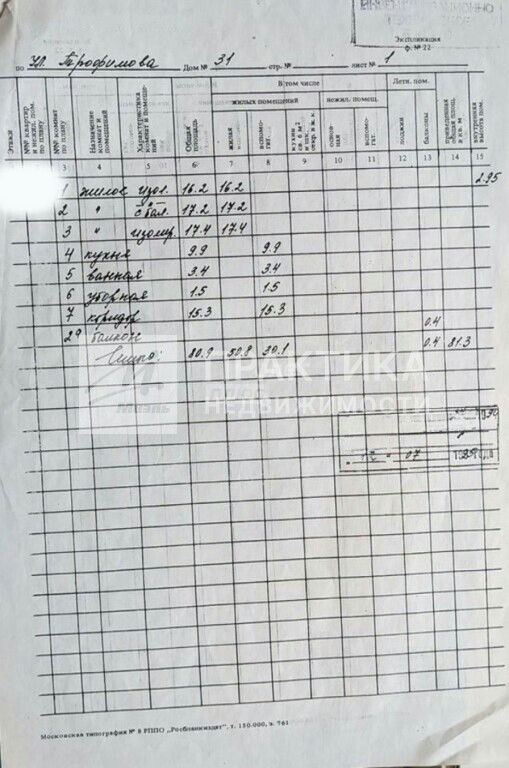 Экспликация
ф. № 22
по ул. Трофимова Дом № 31 стр. № лист № 1
В том числе
Летн. пом.
жилых помещений
нежил. помещ.
Этажи
№№ комнат по плану
Назначение комнат и помещений
Характеристика комнат и помещений
Общая площадь
жилая
вспомогат.
основная
вспомогат.
лоджий
балконы
приведенная общая площ. в кв. м
внутренняя высота пом.
3 4 5 6 7 8 9 10 11 12 13 14 15
2.95
1 жилое изол. 16.2 16.2
2 " с бал. 17.2 17.2
3 " изолир. 17.4 17.4
4 кухня 9.9 9.9
5 ванная 3.4 3.4
6 уборная 1.5 1.5
7 коридор 15.3 15.3
балкон 0.4
Итого: 80.9 50.8 30.1 0.4 81.3
МИЭЛЬ
ПРАКТИКА
НЕДВИЖИМОСТИ
07
Московская типография № 8 РППО „Росбланкиздат", т. 150.000, з. 761